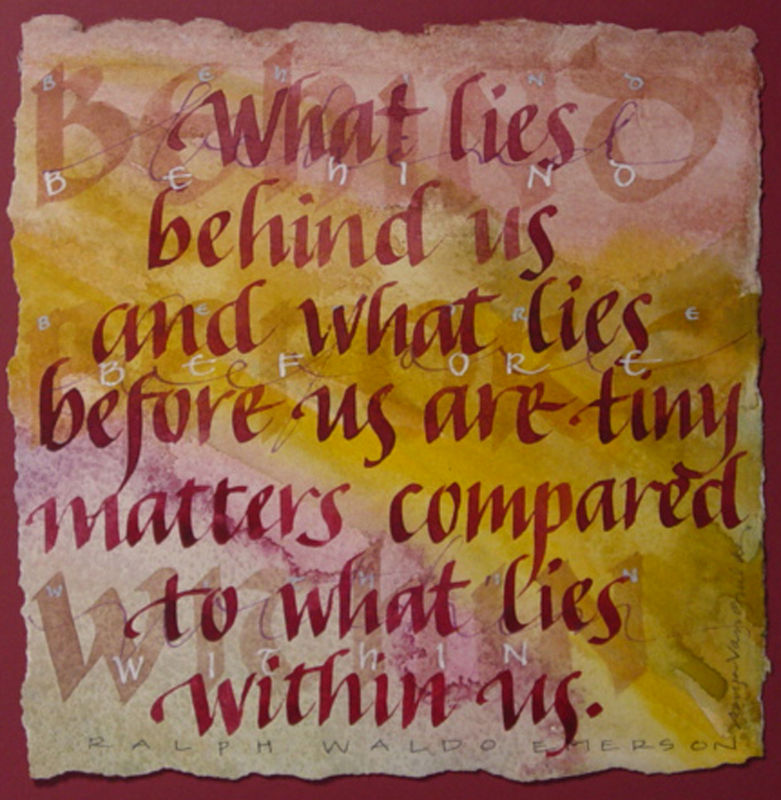 BEHIND
Behind
What lies
BEHIND
behind us
and what lies
BEFORE
before us are tiny
matters compared
to what lies
Within
WITHIN
within us.
RALPH WALDO EMERSON